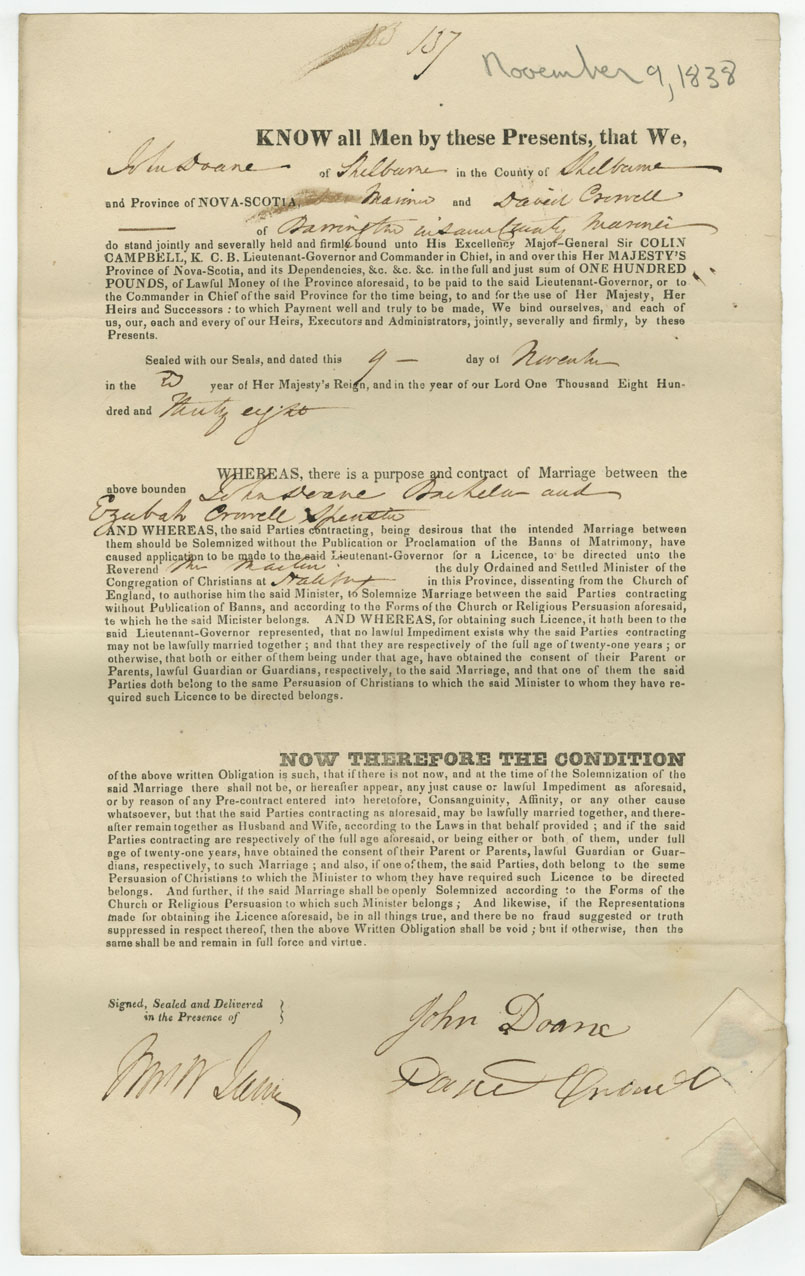 137
November 9, 1838
KNOW all Men by these Presents, that We,
John Doane of Shelburne in the County of Shelburne
and Province of NOVA-SCOTIA, Mariner and David Crowell
of Barrington in same County Mariner
do stand jointly and severally held and firmly bound unto His Excellency Major-General Sir COLIN
CAMPBELL, K. C. B. Lieutenant-Governor and Commander in Chief, in and over this Her MAJESTY'S
Province of Nova-Scotia, and its Dependencies, &c. &c. &c. in the full and just sum of ONE HUNDRED
POUNDS, of Lawful Money of the Province aforesaid, to be paid to the said Lieutenant-Governor, or to
the Commander in Chief of the said Province for the time being, to and for the use of Her Majesty, Her
Heirs and Successors : to which Payment well and truly to be made, We bind ourselves, and each of
us, our, each and every of our Heirs, Executors and Administrators, jointly, severally and firmly, by these
Presents.
Sealed with our Seals, and dated this 9 — day of November
in the 2d year of Her Majesty's Reign, and in the year of our Lord One Thousand Eight Hun-
dred and Thirty eight
WHEREAS, there is a purpose and contract of Marriage between the
above bounden John Doane Bachelor and
Ezubah Crowell Spinster
AND WHEREAS, the said Parties contracting, being desirous that the intended Marriage between
them should be Solemnized without the Publication or Proclamation of the Banns of Matrimony, have
caused application to be made to the said Lieutenant-Governor for a Licence, to be directed unto the
Reverend Mr Martin the duly Ordained and Settled Minister of the
Congregation of Christians at Halifax in this Province, dissenting from the Church of
England, to authorise him the said Minister, to Solemnize Marriage between the said Parties contracting
without Publication of Banns, and according to the Forms of the Church or Religious Persuasion aforesaid,
to which he the said Minister belongs. AND WHEREAS, for obtaining such Licence, it hath been to the
said Lieutenant-Governor represented, that no lawful Impediment exists why the said Parties contracting
may not be lawfully married together ; and that they are respectively of the full age of twenty-one years ; or
otherwise, that both or either of them being under that age, have obtained the consent of their Parent or
Parents, lawful Guardian or Guardians, respectively, to the said Marriage, and that one of them the said
Parties doth belong to the same Persuasion of Christians to which the said Minister to whom they have re-
quired such Licence to be directed belongs.
NOW THEREFORE THE CONDITION
of the above written Obligation is such, that if there is not now, and at the time of the Solemnization of the
said Marriage there shall not be, or hereafter appear, any just cause or lawful Impediment as aforesaid,
or by reason of any Pre-contract entered into heretofore, Consanguinity, Affinity, or any other cause
whatsoever, but that the said Parties contracting as aforesaid, may be lawfully married together, and there-
after remain together as Husband and Wife, according to the Laws in that behalf provided ; and if the said
Parties contracting are respectively of the full age aforesaid, or being either or both of them, under full
age of twenty-one years, have obtained the consent of their Parent or Parents, lawful Guardian or Guar-
dians, respectively, to such Marriage ; and also, if one of them, the said Parties, doth belong to the same
Persuasion of Christians to which the Minister to whom they have required such Licence to be directed
belongs. And further, if the said Marriage shall be openly Solemnized according to the Forms of the
Church or Religious Persuasion to which such Minister belongs ; And likewise, if the Representations
made for obtaining the Licence aforesaid, be in all things true, and there be no fraud suggested or truth
suppressed in respect thereof, then the above Written Obligation shall be void ; but if otherwise, then the
same shall be and remain in full force and virtue.
Signed, Sealed and Delivered
in the Presence of
John Doane
David Crowell